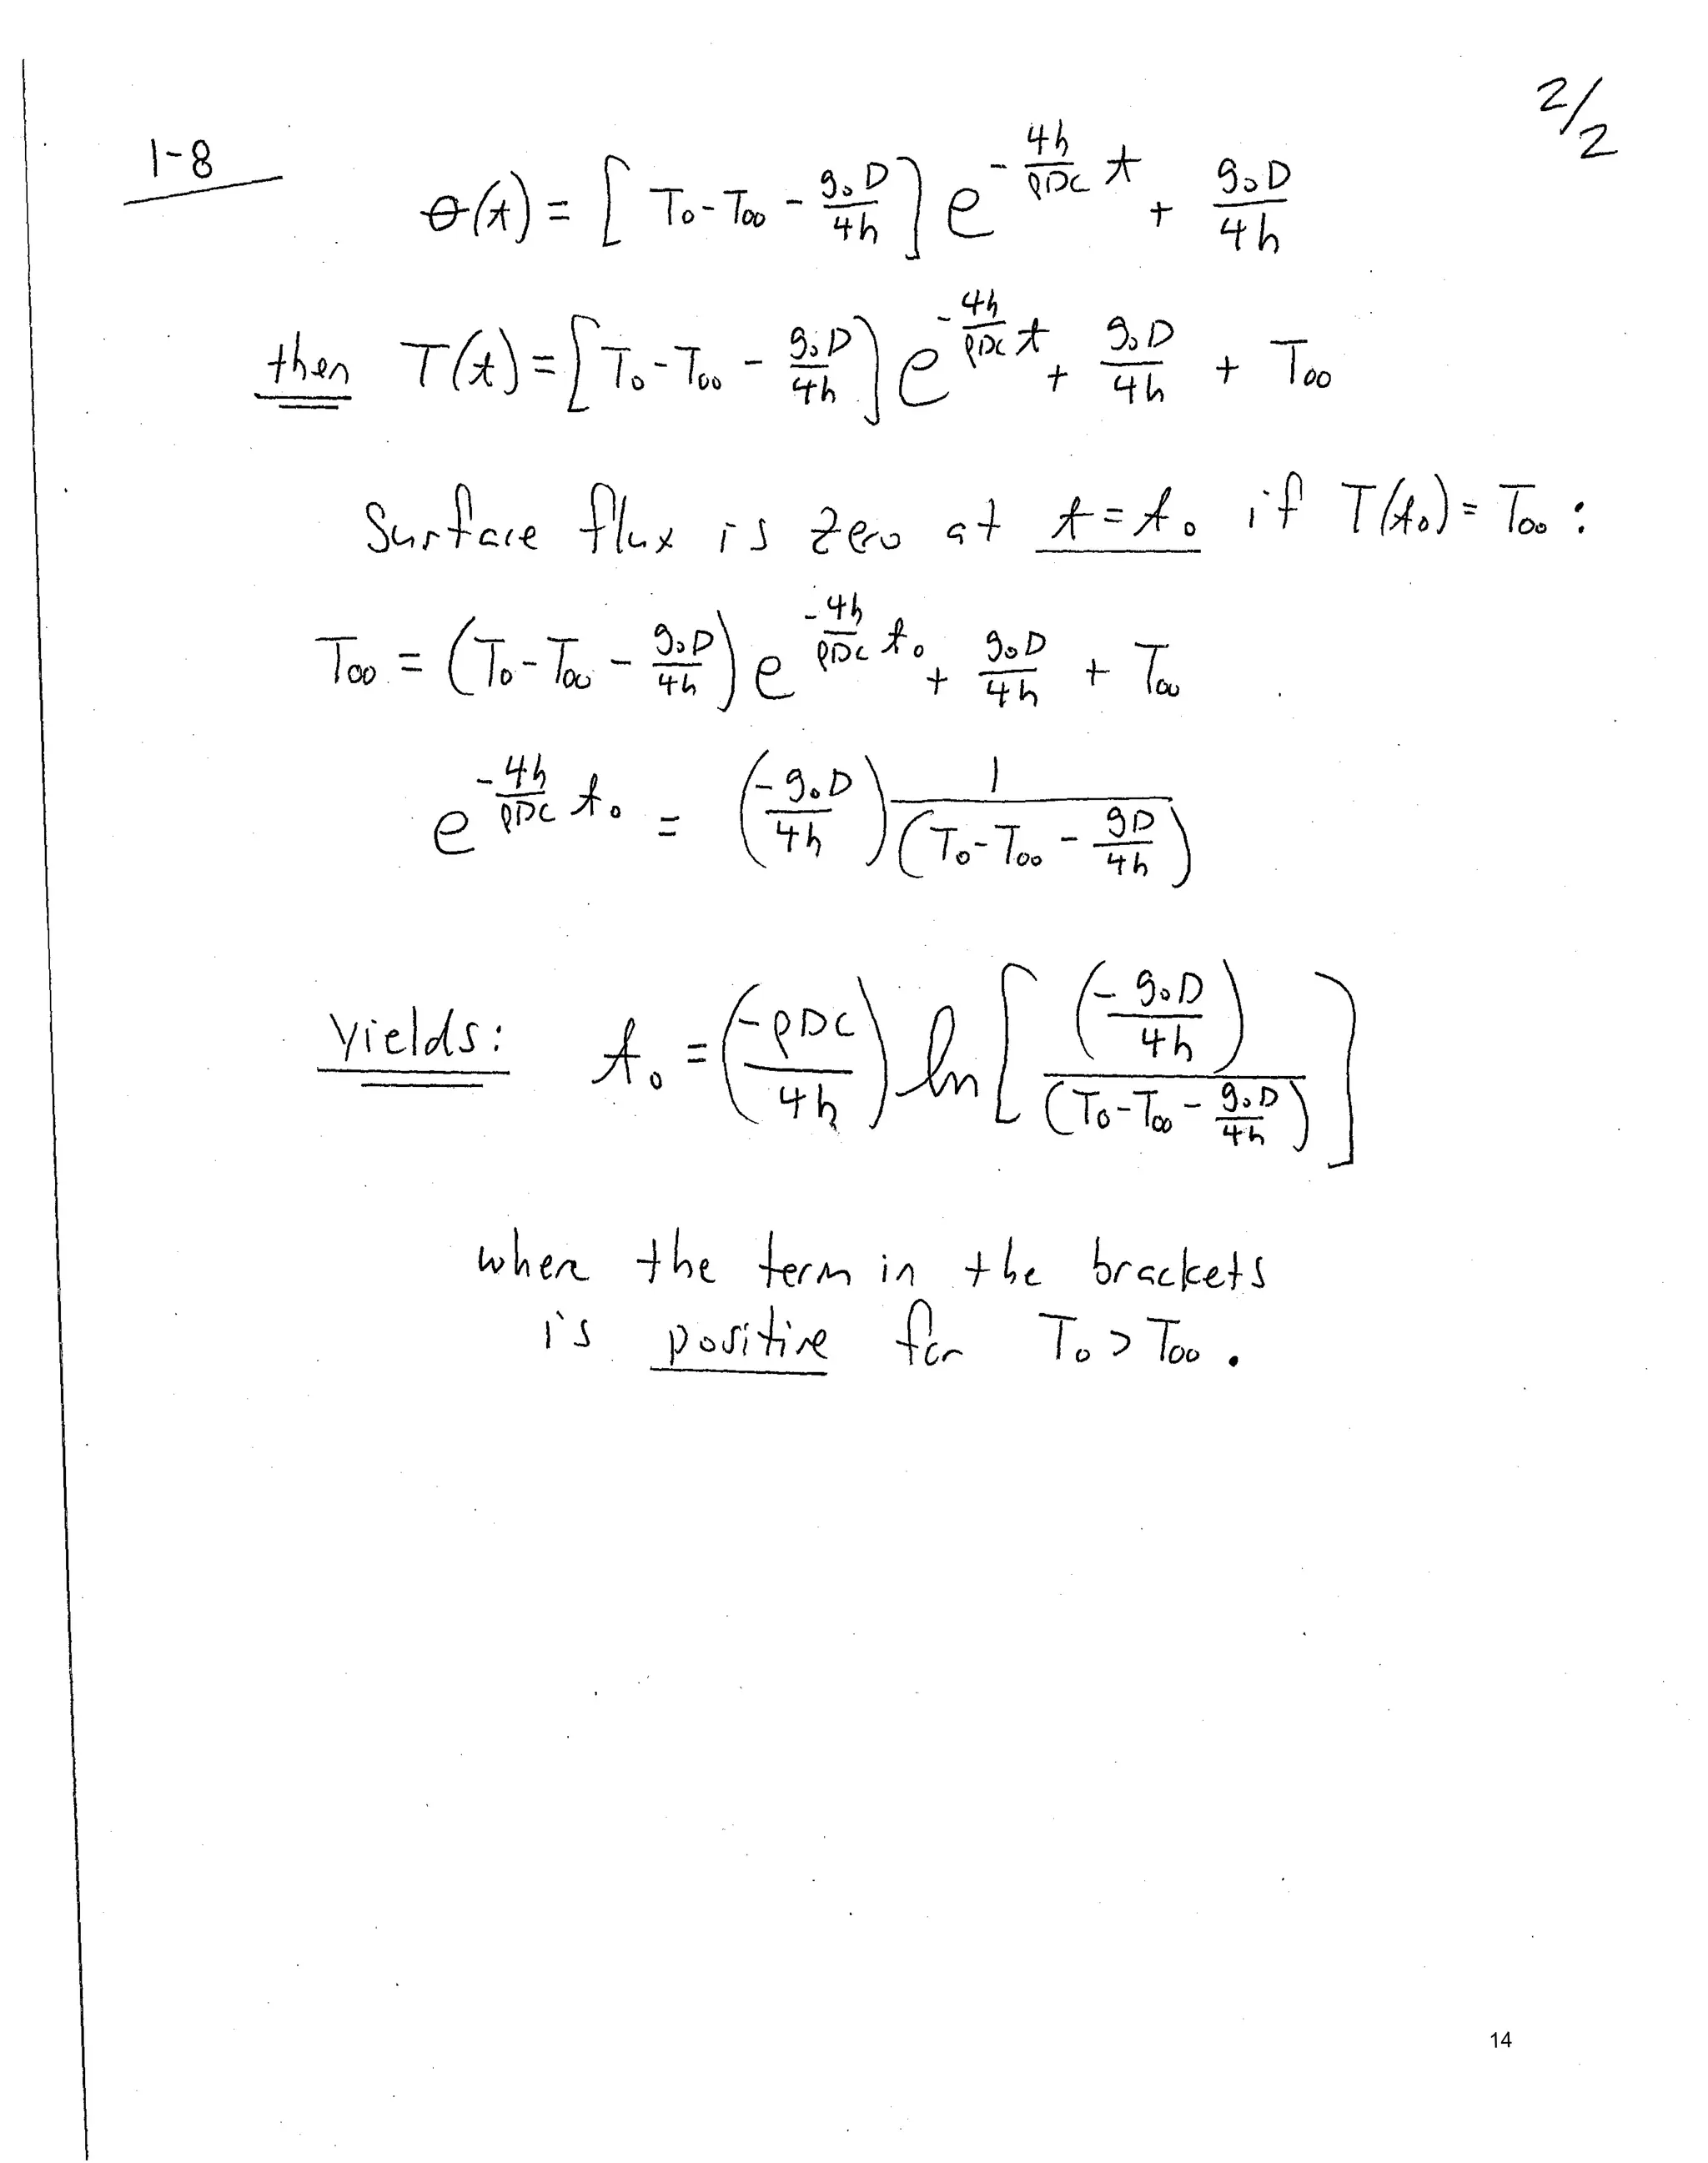 2/2
1-8
θ(t) = [ T₀-T∞ - g₀D/4h ] e^(-4h/ρDc t) + g₀D/4h
then T(t) = [ T₀-T∞ - g₀D/4h ] e^(-4h/ρDc t) + g₀D/4h + T∞
Surface flux is zero at t = t₀ if T(t₀) = T∞ :
T∞ = (T₀-T∞ - g₀D/4h) e^(-4h/ρDc t₀) + g₀D/4h + T∞
e^(-4h/ρDc t₀) = (-g₀D/4h) 1/(T₀-T∞ - gD/4h)
Yields: t₀ = (-ρDc/4h) ln [ (-g₀D/4h) / (T₀-T∞ - g₀D/4h) ]
where the term in the brackets
is positive for T₀ > T∞ .
14